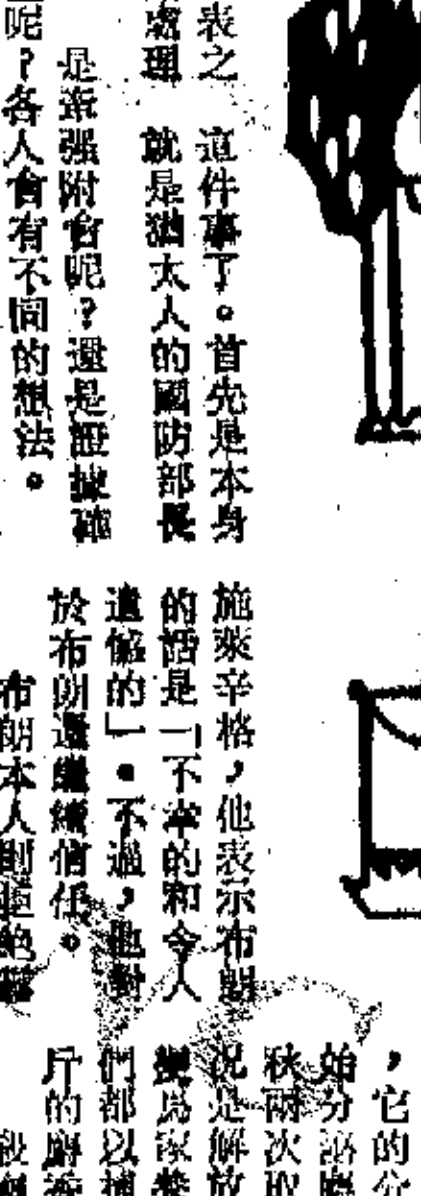 表之 這件事了。首先是本身
處理 就是猶太人的國防部長
是牽强附會呢?還是證據確
呢?各人會有不同的想法。
施萊辛格,他表示布朗
的話是「不幸的和令人
遺憾的」。不過,他對
於布朗還繼續信任。
布朗本人則拒絕
,它的
始分
秋兩次取
况是解放
變爲家
們都以捕
斤的
段